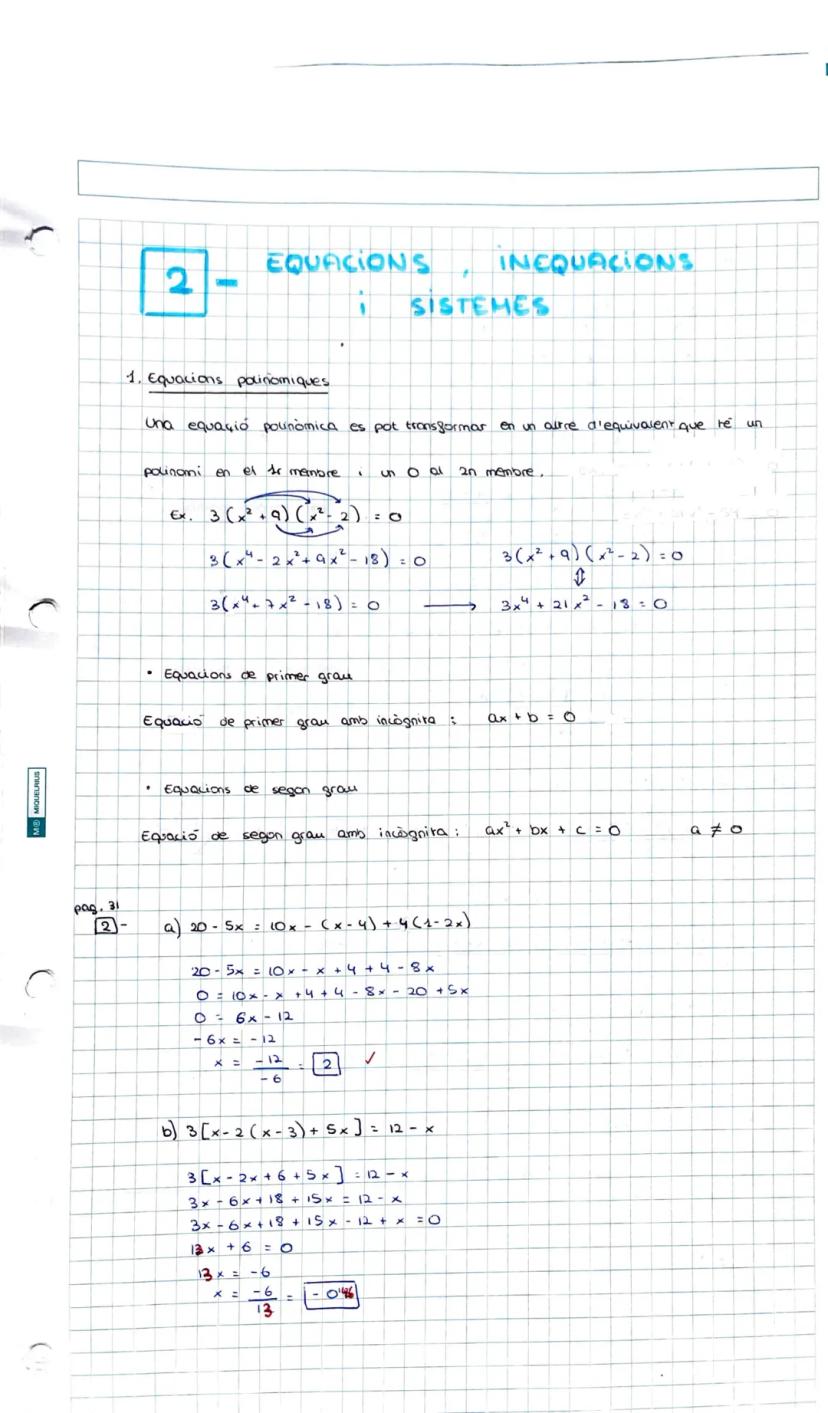 2 - EQUACIONS, INEQUACIONS
i SISTEMES
1. Equacions polinòmiques
Una equació polinòmica es pot transformar en un altre d'equivalent que té un
polinomi en el 1r membre i un 0 al 2n membre.
Ex. 3(x² + 9)(x² - 2) = 0
3(x⁴ - 2x² + 9x² - 18) = 0    3(x² + 9)(x² - 2) = 0
⇕
3(x⁴ + 7x² - 18) = 0 ⟶ 3x⁴ + 21x² - 18 = 0
• Equacions de primer grau
Equació de primer grau amb incògnita : ax + b = 0
• Equacions de segon grau
Equació de segon grau amb incògnita : ax² + bx + c = 0    a ≠ 0
pag. 31
2 - a) 20 - 5x = 10x - (x - 4) + 4(1 - 2x)
20 - 5x = 10x - x + 4 + 4 - 8x
0 = 10x - x + 4 + 4 - 8x - 20 + 5x
0 = 6x - 12
-6x = -12
x = -12/-6 = 2 ✓
b) 3[x - 2(x - 3) + 5x] = 12 - x
3[x - 2x + 6 + 5x] = 12 - x
3x - 6x + 18 + 15x = 12 - x
3x - 6x + 18 + 15x - 12 + x = 0
13x + 6 = 0
13x = -6
x = -6/13 = - 0'46
MIQUELRIUS